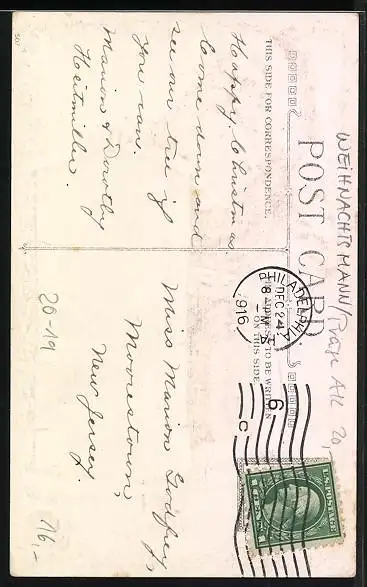 WEIHNACHTSMANN/
POST CARD
THIS SIDE FOR CORRESPONDENCE.
ADDRESS TO BE WRITTEN
ON THIS SIDE.
Happy Christmas.
Come down and
see our tree if
you can.
Marion & Dorothy
Heitmiller.
PHILADELPHIA
DEC 24
8 PM
1916
6
C
U.S. POSTAGE
1 CENT 1
Miss Marion Godfrey,
Moorestown,
New Jersey.
20-19
16,-
307